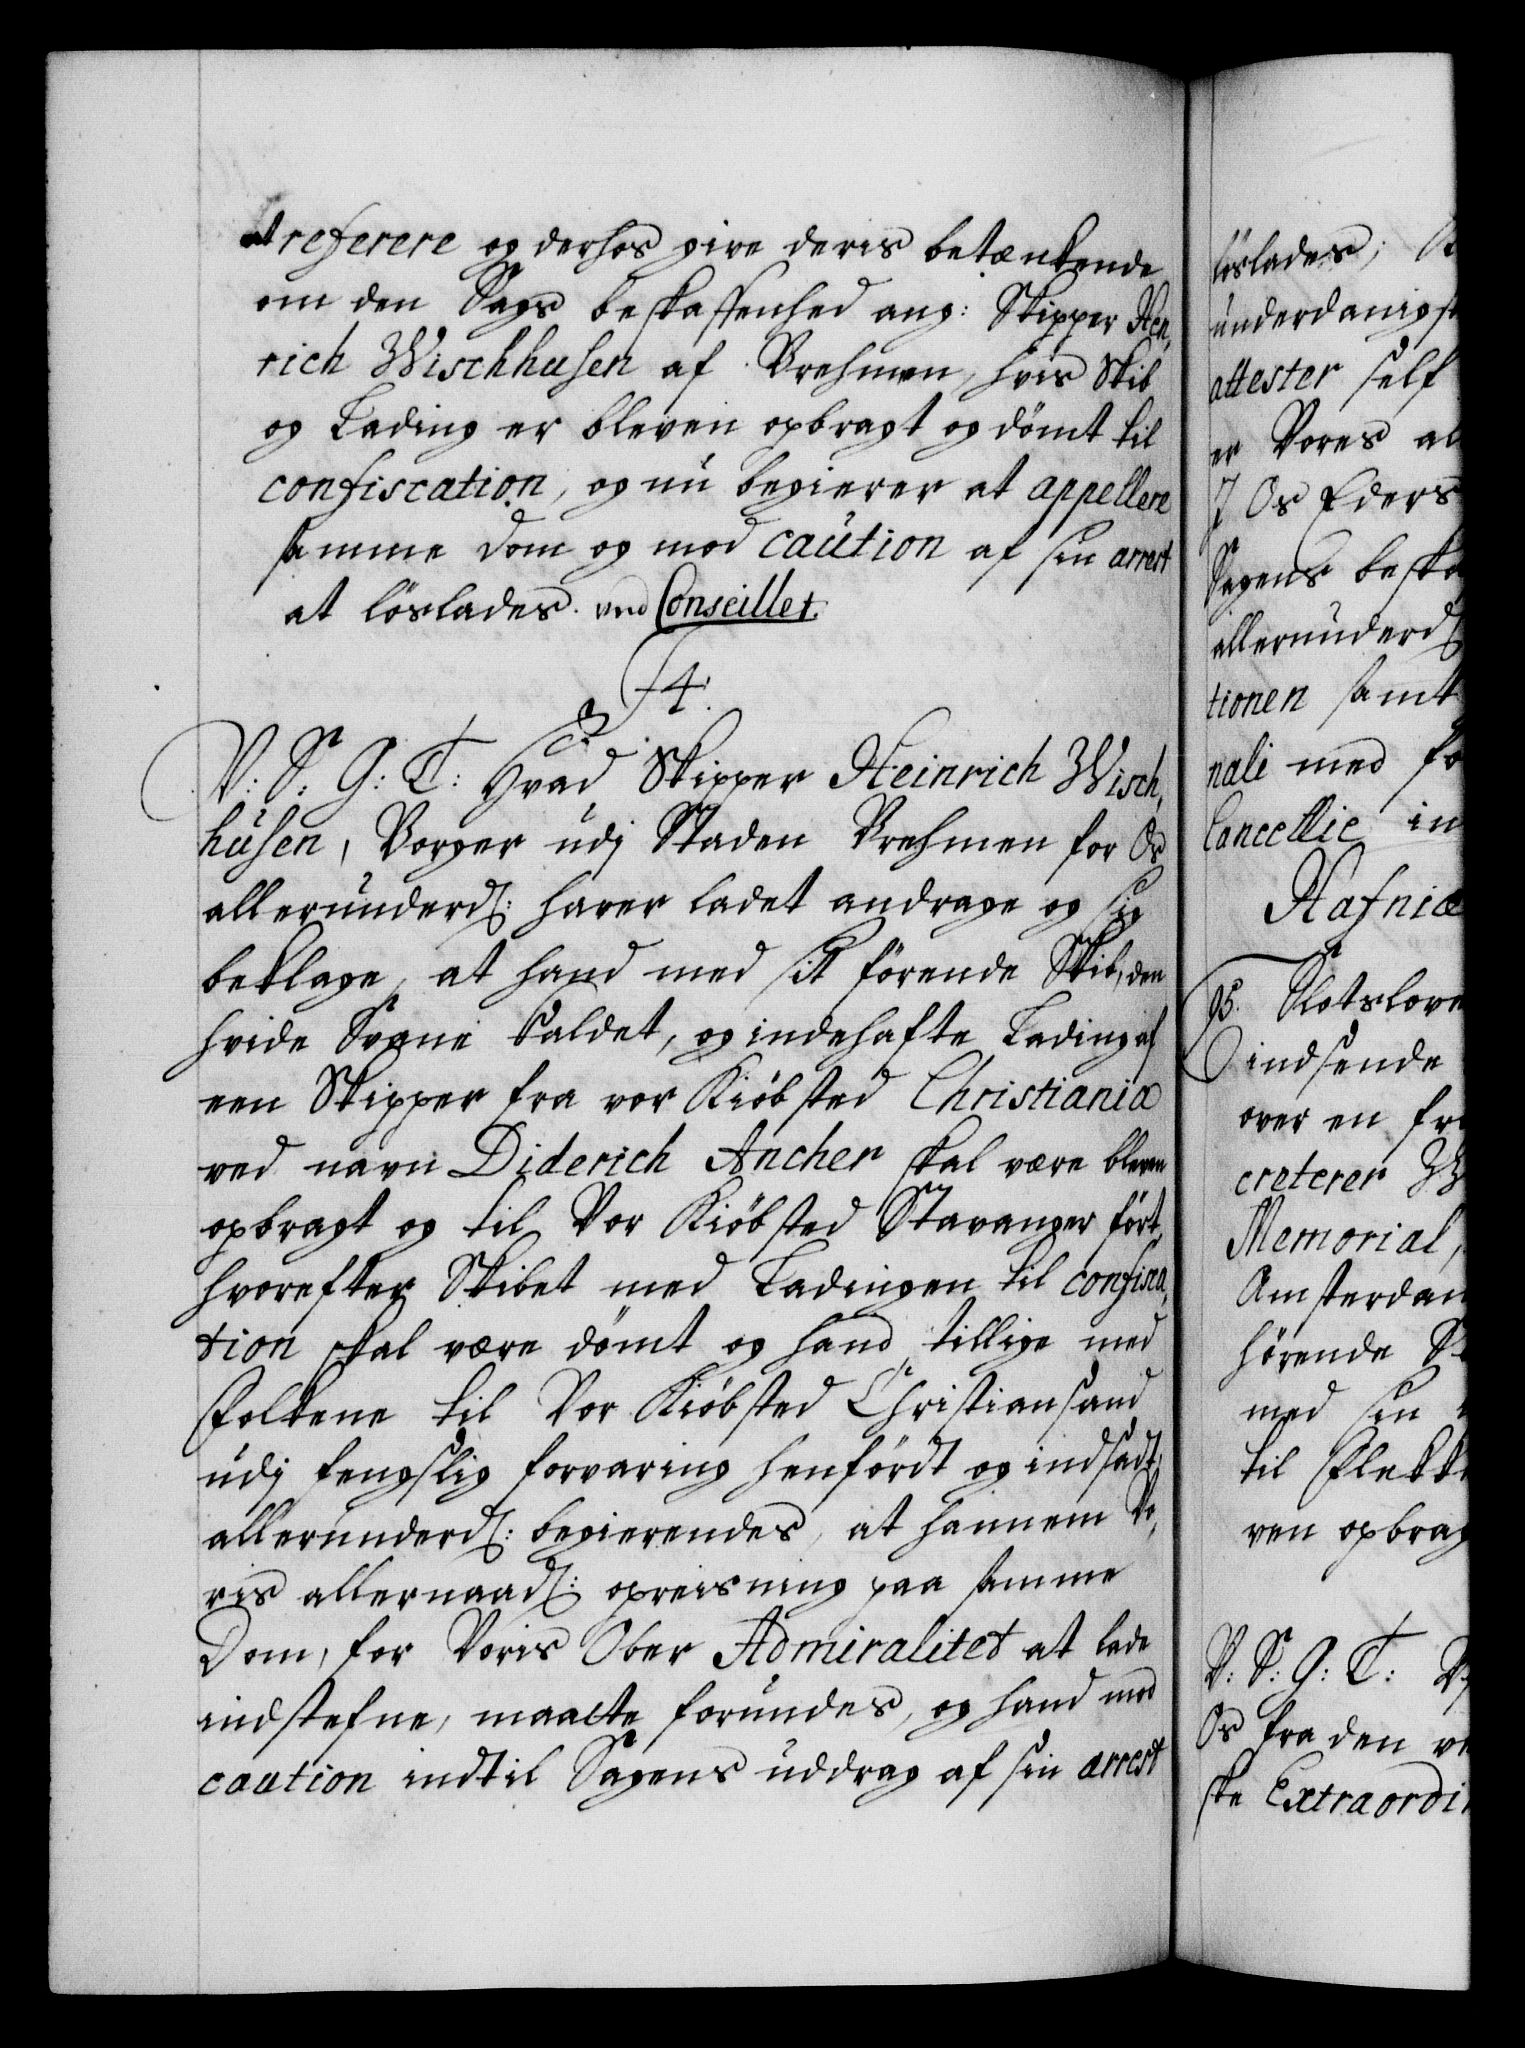 at referere og derhos give deris betænkende
om den Sags beskaffenhed ang: Skipper Hen,
rich Wischhusen af Brehmen, hvis Skib
og Lading er bleven opbragt og dömt til
confiscation, og nu begierer at appellere
samme Dom og mod caution af sin arrest
at löslades. ved Conseillet.
94.
V: S: G: T: Hvad Skipper Heinrich Wisch,
husen, Borger udj Staden Brehmen for Os
allerunderd: haver ladet andrage og sig
beklage, at hand med sit förende Skib, den
hvide Svane kaldet, og indehafte Lading af
een Skipper fra vor Kiöbsted Christiania
ved navn Diderich Ancher skal være bleven
opbragt og til Vor Kiöbsted Stavanger fört,
hvorefter Skibet med Ladingen til confisca,
tion skal være dömt og hand tillige med
Folkene til Vor Kiöbsted Christiansand
udj fengslig forvaring henfördt og indsadt,
allerunderd: begierendes, at hannem Vo,
ris allernaad: opreisning paa samme
Dom, for Voris Ober Admiralitet at lade
indstefne, maatte forundes, og hand mod
caution indtil Sagens uddrag af sin arrest
löslades;
underdanigst
attester self
er Vores al
J Os Eders
Sagens beska
allerunderd
tionen samt
nali med fo
Cancellie in
Hafniæ
95. Slotslove
indsende
over en fra
creterer W
Memorial,
Amsterdam
hörende S
med sin
til Flekke
ven opbrag
V: S: G: T:
Os fra den
ske Extraordin